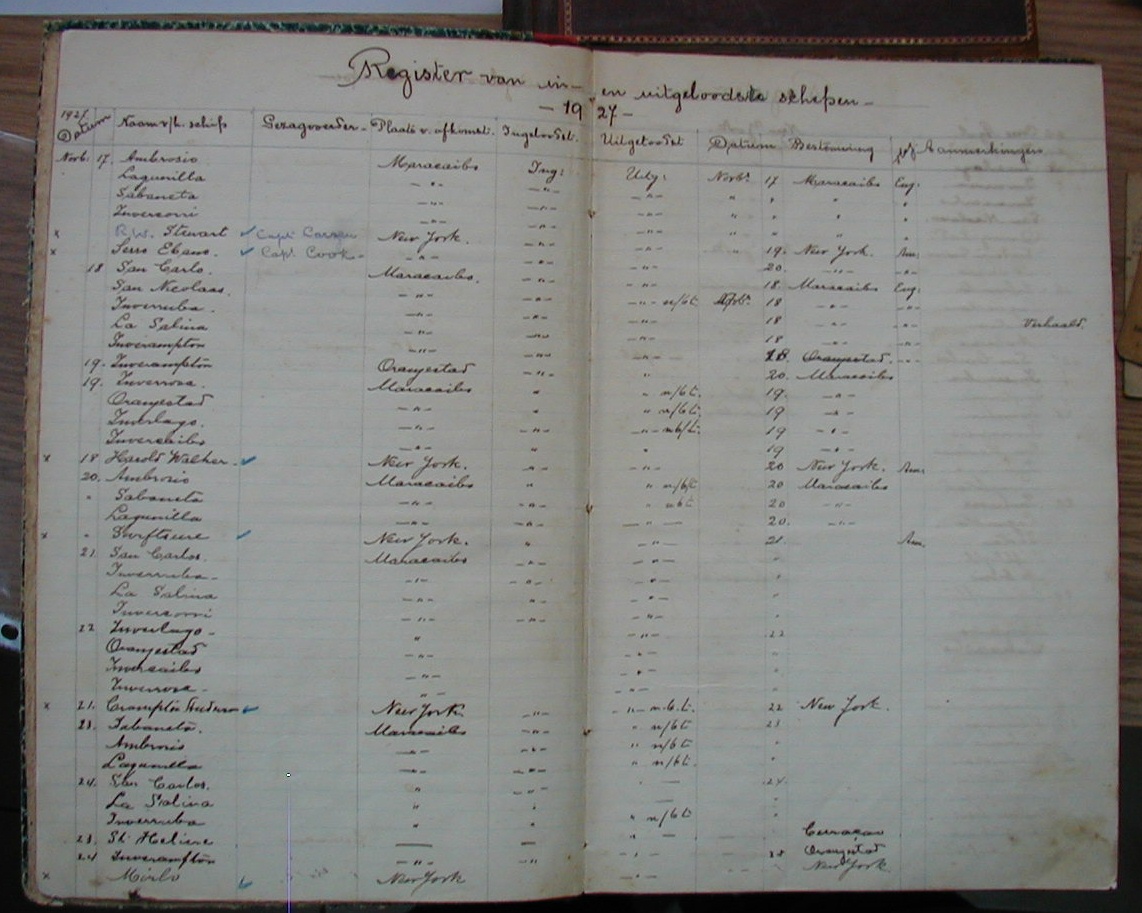 Register van in- en uitgeloodste schepen -
- 19 27 -
1927 Datum Naam v/h. schip Gezagvoerder - Plaats v. afkomst. Ingeloodst. Uitgeloodst Datum Bestemming Aanmerkingen
Novb. 17 Ambrosio Maracaibo Ing: Uitg: Novbr 17 Maracaibo Eng.
Lagunilla - " - - " - - " - " " " "
Sabaneta - " - - " - - " - " " " "
Inverorri - " - - " - - " - " " " "
x R.W. Stewart ✓ Capt. New York. - " - - " - " 19. New York. Am.
x Serro Ebano. ✓ Capt. Cook - - " - - " - - " - 20. - " - - " -
18 San Carlo. Maracaibo. - " - - " - 18. Maracaibo Eng.
San Nicolaas. - " - - " - - " - n/bt. 18 - " - - " -
Inverruba. - " - - " - - " - 18 - " - - " - Verhaald.
La Salina - " - - " - - " - 18 - " - - " -
Inverampton - " - - " - - " - 18. Oranjestad. - " -
19. Inverampton Oranjestad - " - " 20. Maracaibo
19. Inverrosa. Maracaibo " " n/bt. 19. - " -
Oranjestad - " - " " n/bt. 19 - " -
Inverlago. - " - - " - - " - n/bt. 19 - " -
Invercaibo " - " - 19 - " -
x 18 Harold Walker - ✓ New York. - " - - " - 20 New York. Am.
20. Ambrosio Maracaibo " " n/bt 20 Maracaibo
" Sabaneta - " - - " - " nbt 20 - " -
Lagunilla - " - - " - - " - 20. - " -
x " Swiftsure ✓ New York. " - " - 21. Am.
21. San Carlos. Maracaibo - " - - " - "
Inverruba - - " - - " - - " - "
La Salina - " - - " - - " - "
Inverorri - " - - " - - " - "
22 Inverlago - " - " - 22
Oranjestad - " - - " - "
Invercaibo - " - - " - "
Inverrosa - - " - - " -
x 21. Crampton ✓ New York. - " - - " - n.b.t. 22 New York.
23. Sabaneta. Maracaibo - " - " n/bt 23
Ambrosio - " - - " - " n/bt "
Lagunilla - " - - " - " n/bt.
24. San Carlos. " - " - 24.
La Salina " " "
Inverruba " " " n/bt
23. St. Heliere - - " - Curaçao
24 Inverampton - " - - " - - " - Oranjestad
x Mirlo ✓ New York - " - New York